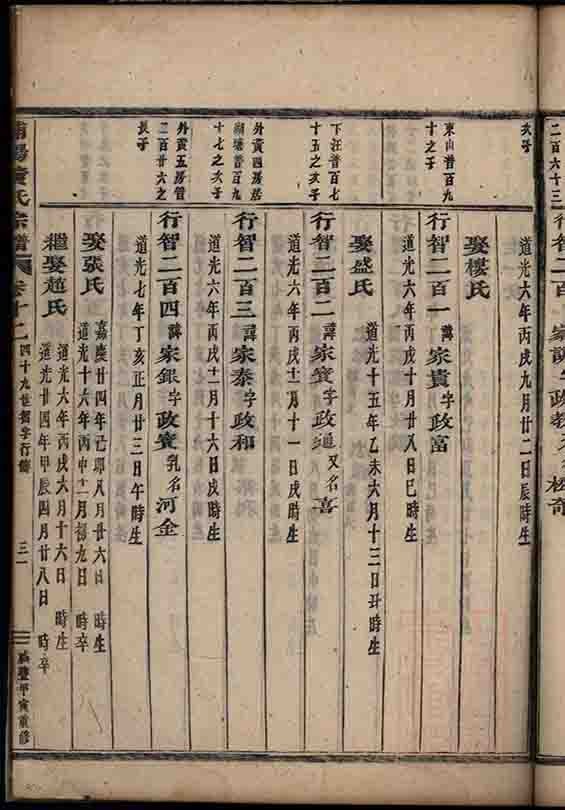 二百六十三
次子
道光六年丙戌九月廿二日辰時生
娶樓氏
東山普百九
十之子
行智二百一諱家貴字政富
道光六年丙戌十月廿八日巳時生
娶盛氏
道光十五年乙未六月十三日丑時生
下汪普百七
十五之次子
行智二百二諱家寔字政通又名喜
道光六年丙戌十二月十一日戌時生
外黃四房居
湖塘普百九
十七之次子
行智二百三諱家泰字政和
道光六年丙戌十一月十六日戌時生
外黃五房管
二百廿六之
長子
行智二百四諱家銀字政寶乳名河金
道光七年丁亥正月廿三日午時生
娶張氏
嘉慶廿四年己卯八月廿六日 時生
道光十六年丙申十一月初九日 時卒
繼娶趙氏
道光六年丙戌六月十六日 時生
道光廿四年甲辰四月廿八日 時卒
氏宗譜
卷十二
四十九世智字行傳
三一
甲寅重修